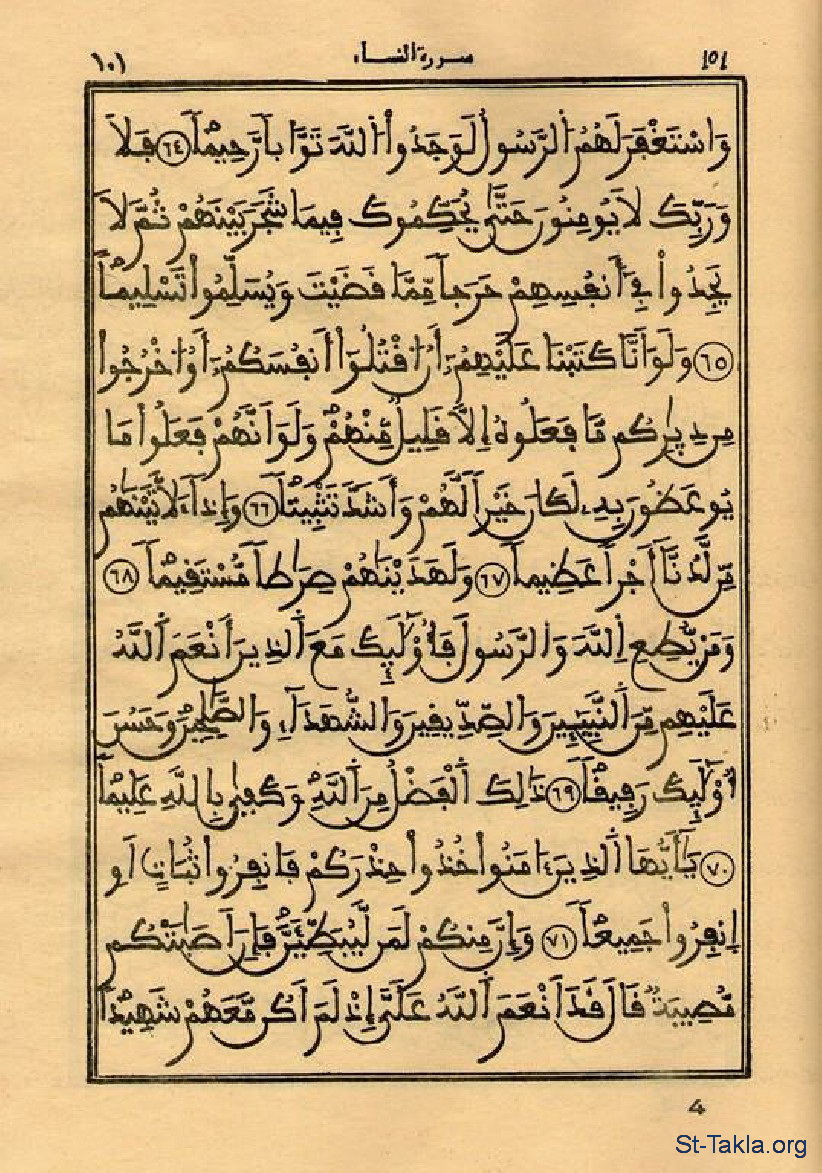 ١٥١ سورة النساء ١٠١
وَاسْتَغْفَرَ لَهُمُ الرَّسُولُ لَوَجَدُواْ اللَّهَ تَوَّاباً رَّحِيماً ٦٤ فَلاَ
وَرَبِّكَ لاَ يُومِنُونَ حَتَّىٰ يُحَكِّمُوكَ فِيمَا شَجَرَ بَيْنَهُمْ ثُمَّ لاَ
يَجِدُواْ فِےٓ أَنفُسِهِمْ حَرَجاً مِّمَّا قَضَيْتَ وَيُسَلِّمُواْ تَسْلِيماً
٦٥ وَلَوَ اَنَّا كَتَبْنَا عَلَيْهِمُۥٓ أَنُ اقْتُلُوٓاْ أَنفُسَكُمُۥٓ أَوُ اخْرُجُواْ
مِن دِيٰرِكُم مَّا فَعَلُوهُ إِلاَّ قَلِيلٌ مِّنْهُمْ وَلَوَ اَنَّهُمْ فَعَلُواْ مَا
يُوعَظُونَ بِهِۦ لَكَانَ خَيْراً لَّهُمْ وَأَشَدَّ تَثْبِيتاً ٦٦ وَإِذاً ءَلاَتَيْنَٰهُم
مِّن لَّدُنَّآ أَجْراً عَظِيماً ٦٧ وَلَهَدَيْنَٰهُمْ صِرَٰطاً مُّسْتَقِيماً ٦٨
وَمَنْ يُّطِعِ اِللَّهَ وَالرَّسُولَ فَأُوْلَٰٓئِكَ مَعَ الذِينَ أَنْعَمَ اَللَّهُ
عَلَيْهِم مِّنَ اَلنَّبِيٓـِٕينَ وَالصِّدِّيقِينَ وَالشُّهَدَآءِ وَالصَّٰلِحِينَ وَحَسُنَ
أُوْلَٰٓئِكَ رَفِيقاً ٦٩ ذَٰلِكَ اَلْفَضْلُ مِنَ اَللَّهِ وَكَفَىٰ بِاللَّهِ عَلِيماً
٧٠ يَٰٓأَيُّهَا اَلذِينَ ءَامَنُواْ خُذُواْ حِذْرَكُمْ فَانفِرُواْ ثُبَاتٍ اَوِ
اِنفِرُواْ جَمِيعاً ٧١ وَإِنَّ مِنكُمْ لَمَن لَّيُبَطِّئَنَّ فَإِنَ اَصَٰبَتْكُم
مُّصِيبَةٌ قَالَ قَدَ اَنْعَمَ اَللَّهُ عَلَىَّ إِذْ لَمَ اَكُن مَّعَهُمْ شَهِيداً
4
St-Takla.org